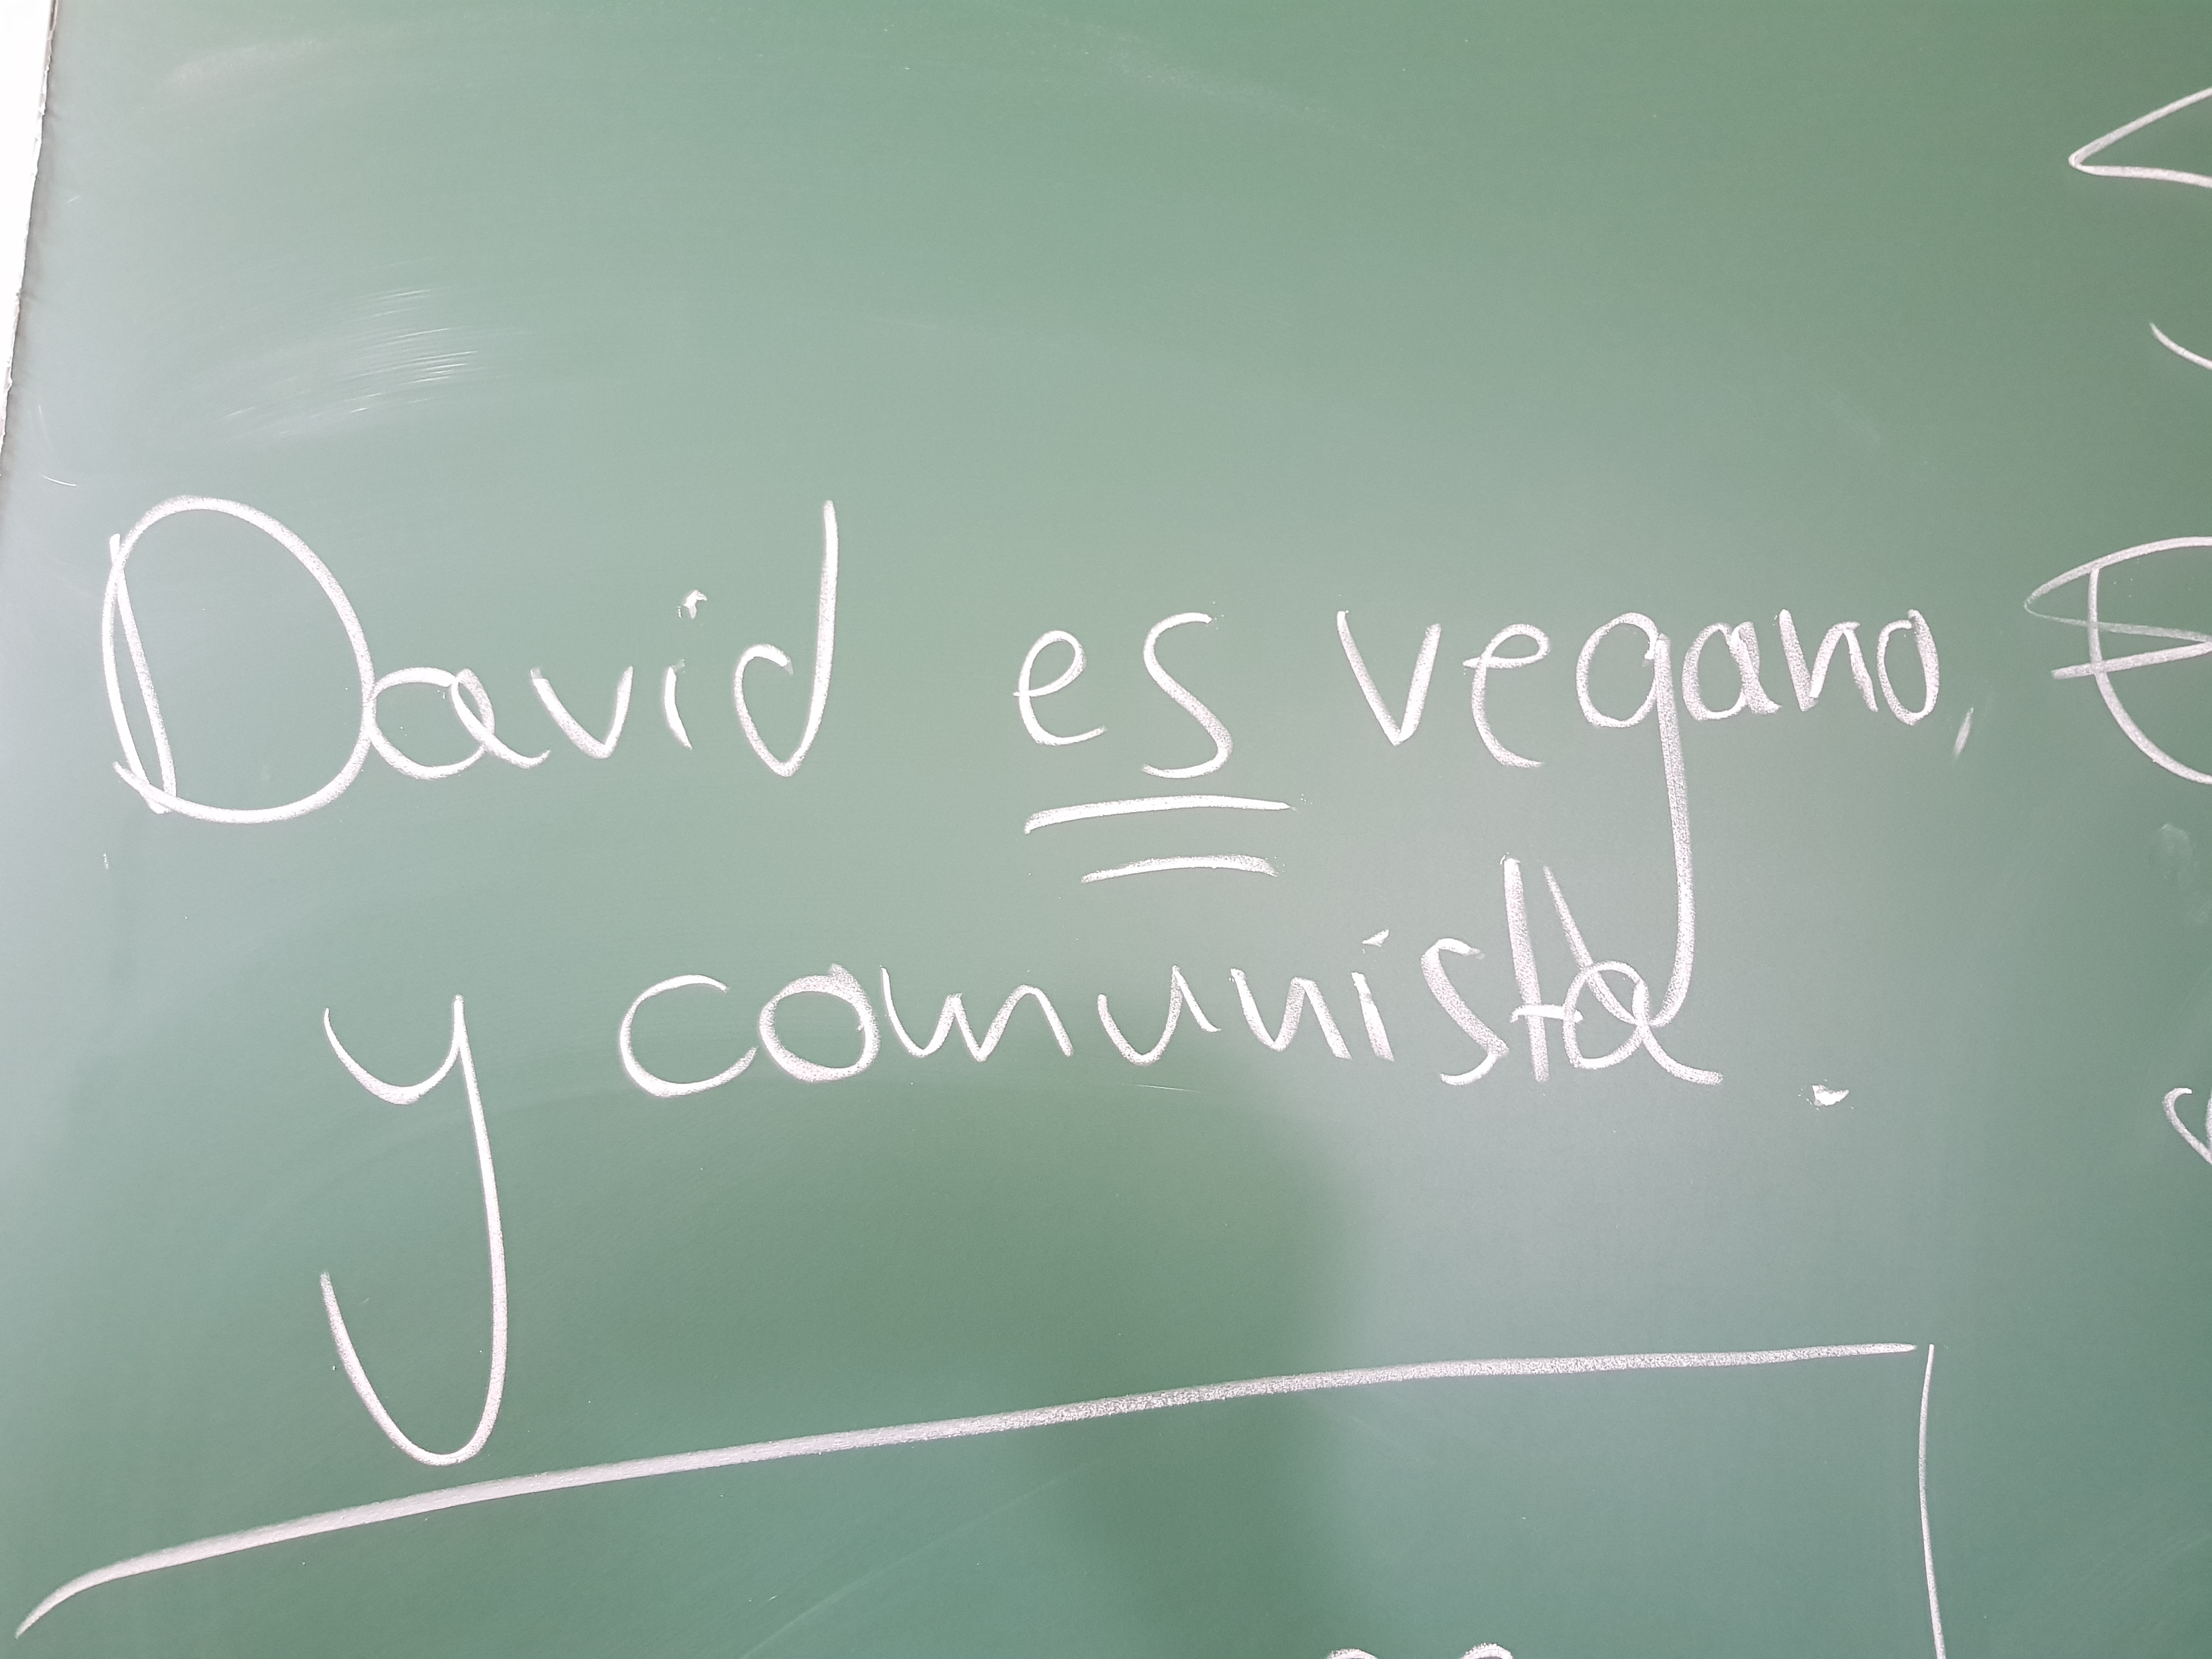 David es vegano,
y comunista.